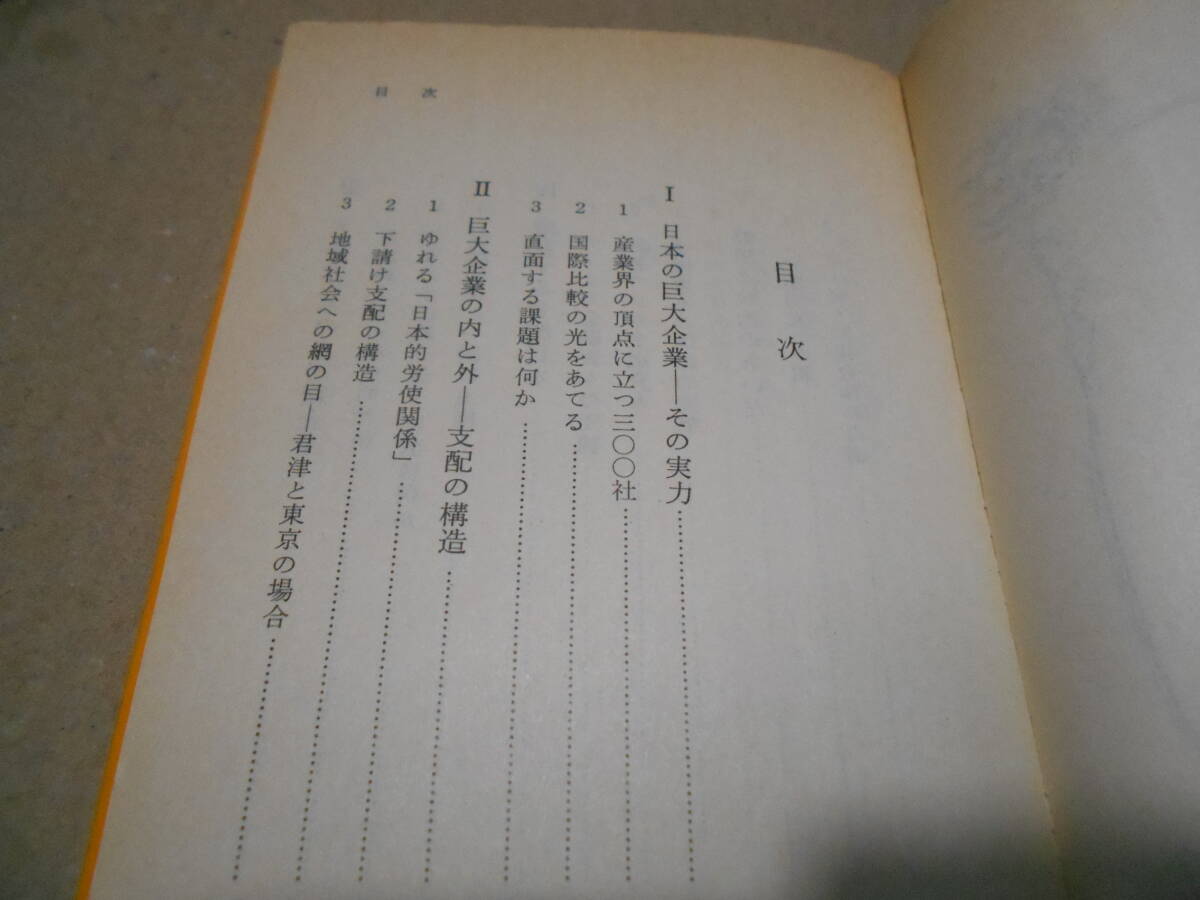 目次
目次
I 日本の巨大企業――その実力……………………
1 産業界の頂点に立つ三〇〇社……………………
2 国際比較の光をあてる……………………
3 直面する課題は何か……………………
II 巨大企業の内と外――支配の構造……………………
1 ゆれる「日本的労使関係」……………………
2 下請け支配の構造……………………
3 地域社会への網の目―君津と東京の場合……………………